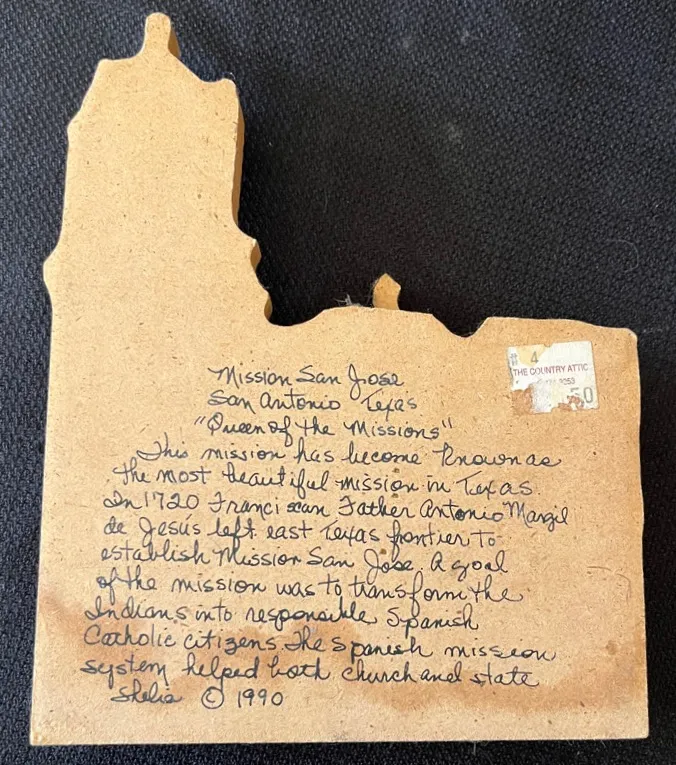 Mission San José
San Antonio Texas
"Queen of the Missions"
This mission has become known as
the most beautiful mission in Texas.
In 1720 Franciscan Father Antonio Margil
de Jesús left east Texas frontier to
establish Mission San Jose. A goal
of the mission was to transform the
Indians into responsible Spanish
Catholic citizens. The Spanish mission
system helped both church and state
Shelia © 1990
# 4
THE COUNTRY ATTIC
50